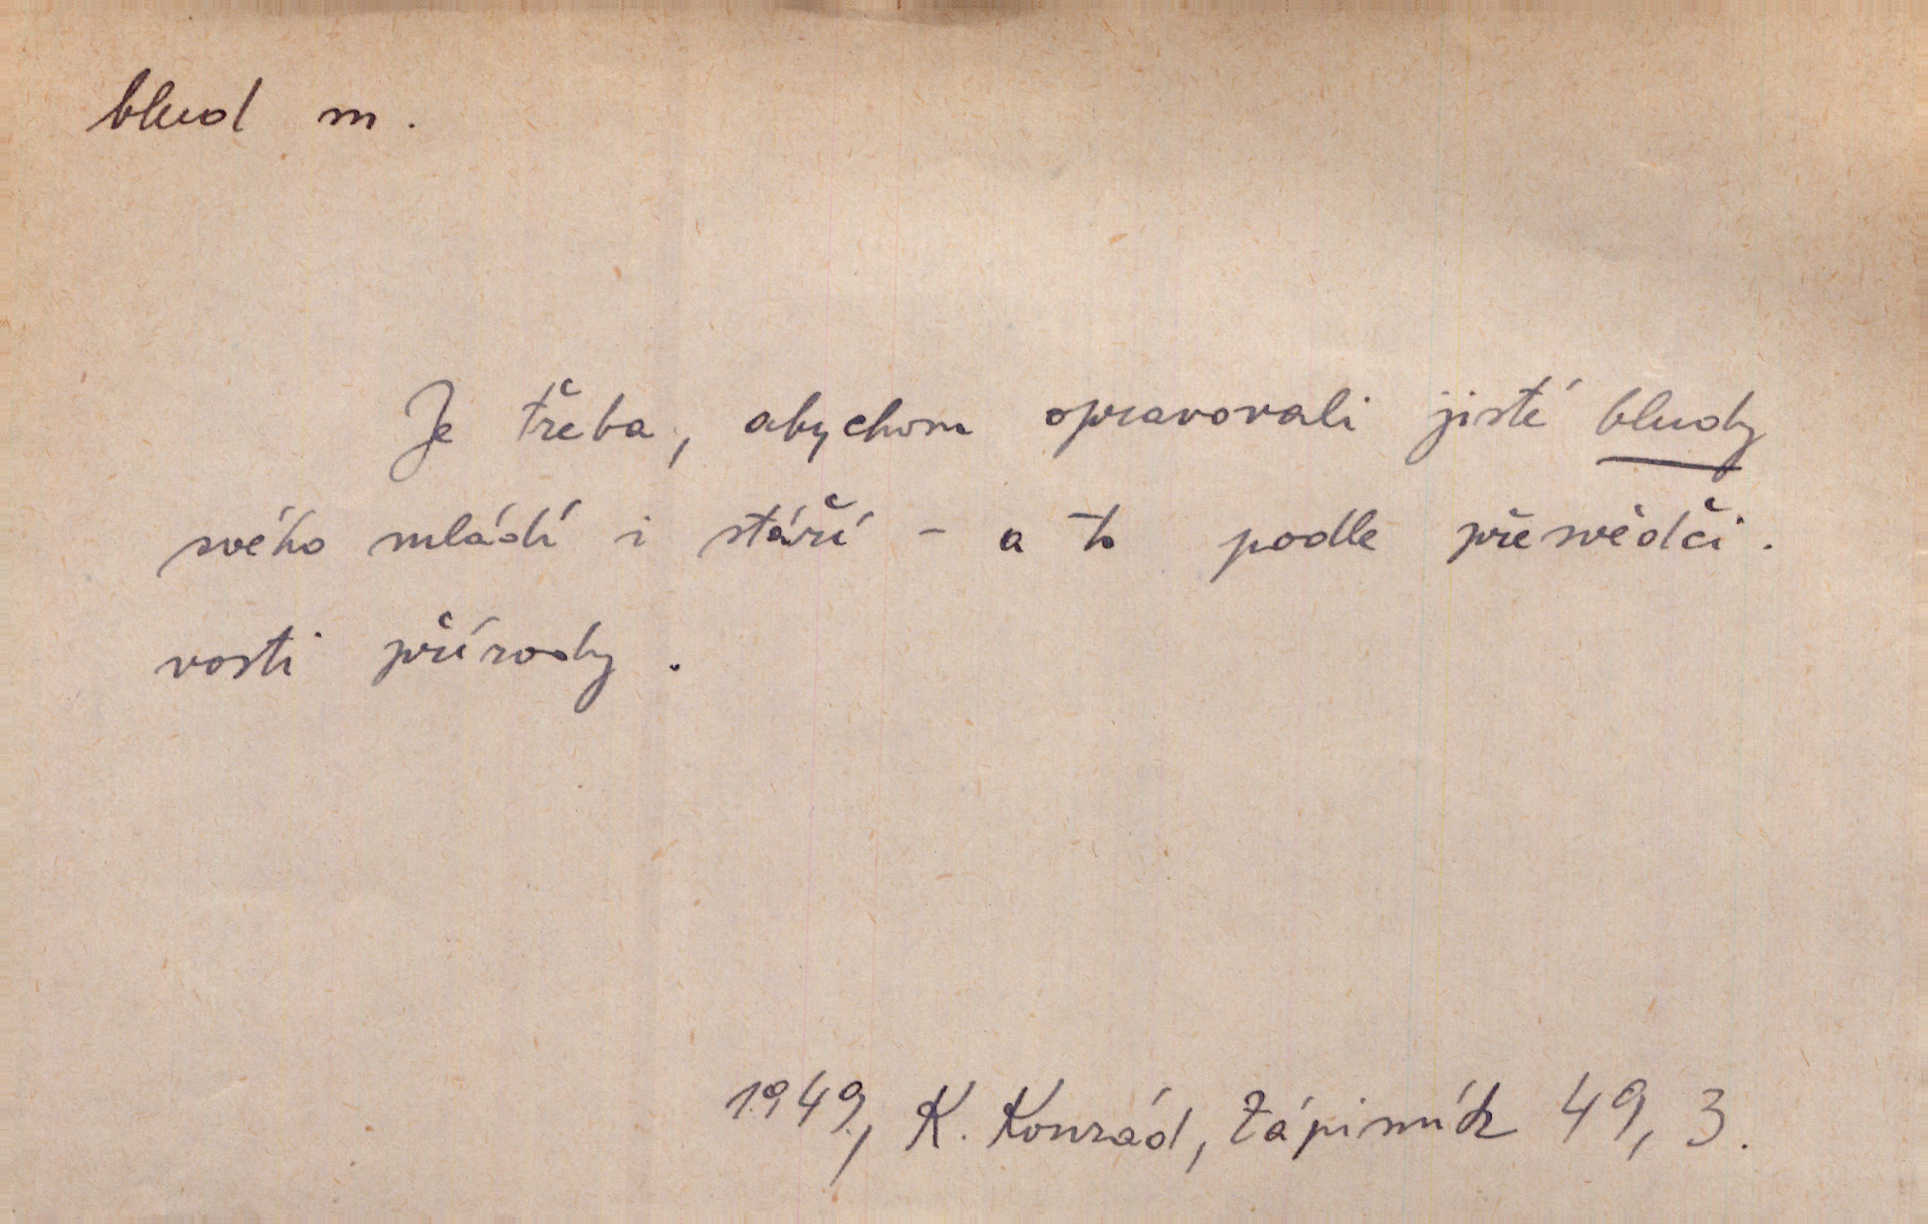 blud m.
Je třeba, abychom opravovali jisté bludy
svého mládí i stáří - a to podle přesvědči.
vosti přírody.
1949, K. Konrád, Zápisník 49, 3.